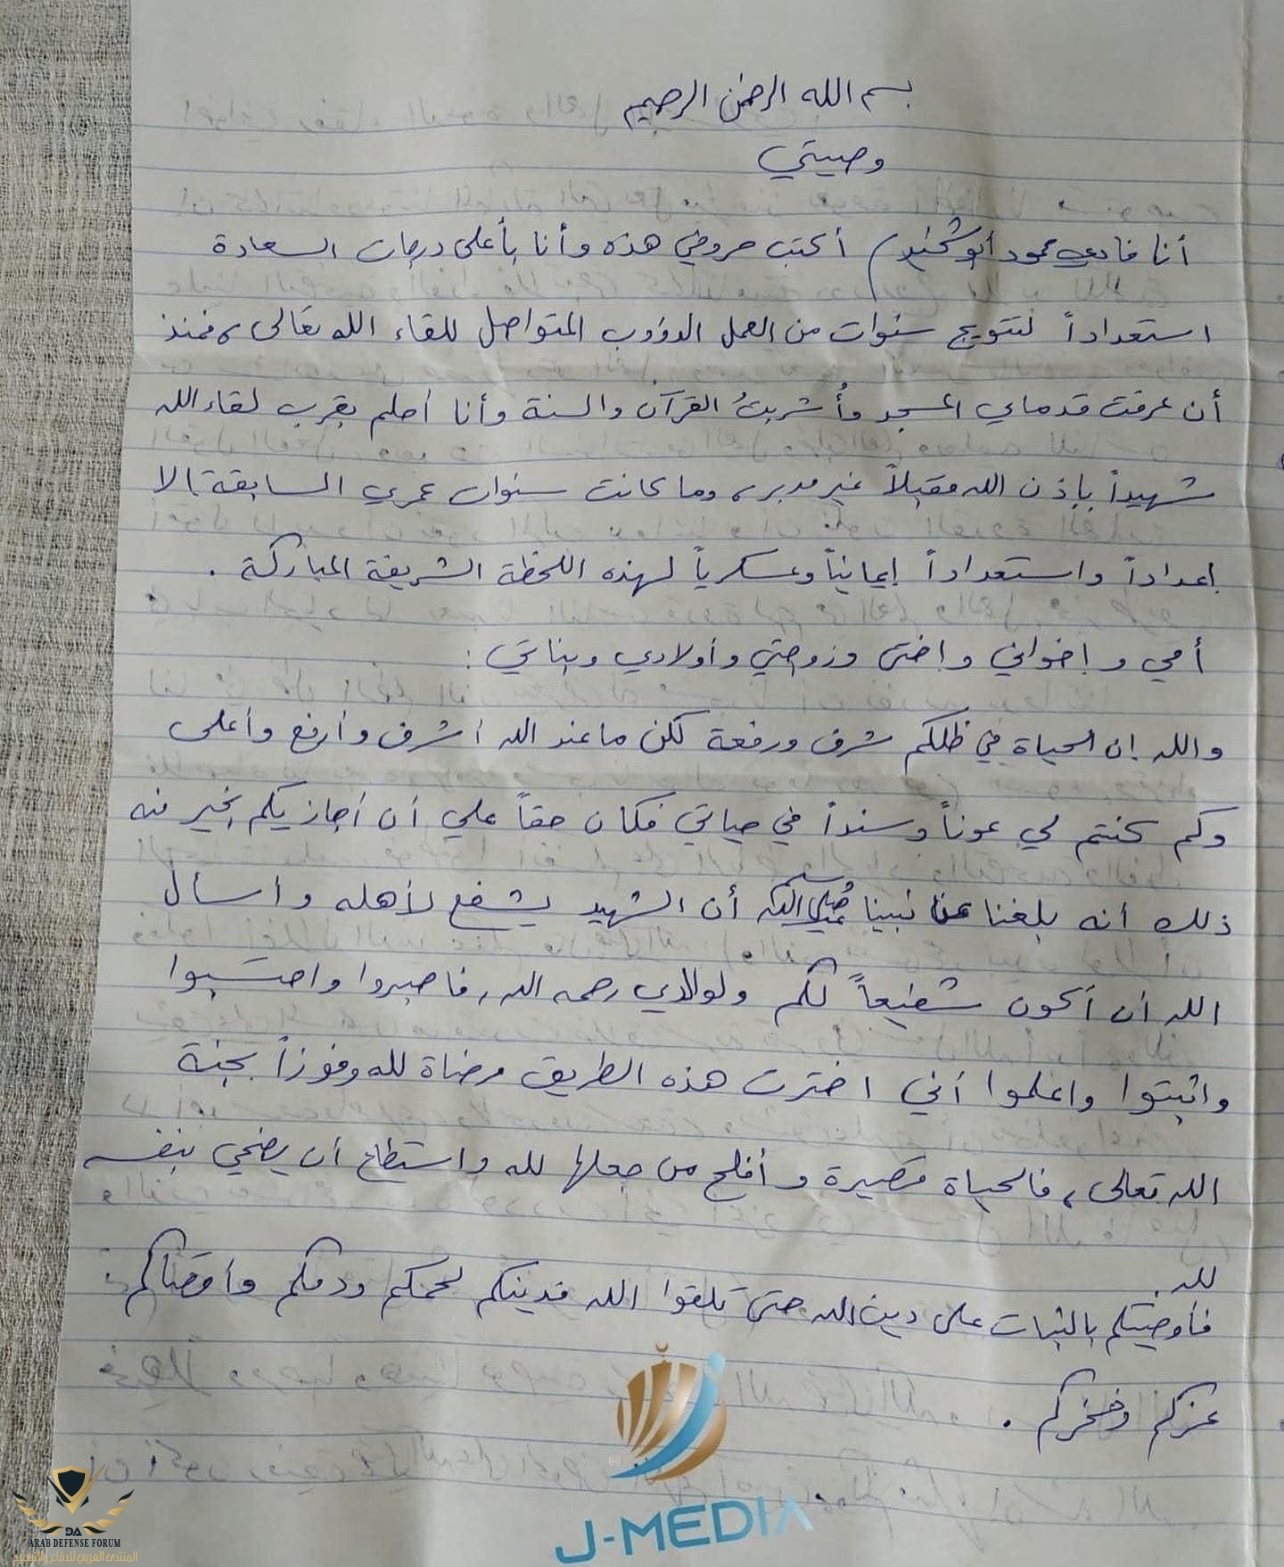 بسم الله الرحمن الرحيم
وصيتي
أنا فادي محمود أبو شخيدم أكتب حروفي هذه وأنا بأعلى درجات السعادة
استعداداً لتتويج سنوات من العمل الدؤوب المتواصل للقاء الله تعالى، فمنذ
أن عرفت قدماي المسجد وأُشربتُ القرآن والسنة وأنا أحلم بقرب لقاء الله
شهيداً بإذن الله مقبلاً غير مدبر، وما كانت سنوات عمري السابقة إلا
إعداداً واستعداداً إيمانياً وعسكرياً لهذه اللحظة الشريفة المباركة.
أمي وإخواني وإختي وزوجتي وأولادي وبناتي:
والله إن الحياة في ظلكم شرف ورفعة لكن ما عند الله أشرف وأرفع وأعلى
وكم كنتم لي عوناً وسنداً في حياتي فكان حقاً علي أن أجازيكم بخير منه
ذلك أنه بلغنا عن نبينا أن الشهيد يشفع لأهله وأسأل
الله أن أكون شفيعاً لكم ولوالدي رحمه الله، فاصبروا واحتسبوا
واثبتوا واعلموا أني اخترت هذه الطريق مرضاة لله وفوزاً بجنة
الله تعالى، فالحياة قصيرة وأفلح من جعلها لله واستطاع أن يضحي بنفسه
لله.
فأوصيتكم بالثبات على دين الله حتى تلقوا الله فدينكم لحمكم ودمكم وأقصاكم
عزكم وفخركم.
J-MEDIA
DA
ARAB DEFENSE FORUM